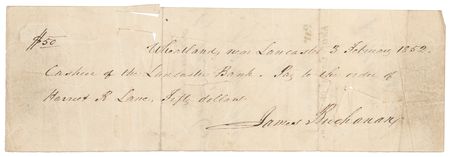 $50
Wheatland, near Lancaster 3 February 1852.
Cashier of the Lancaster Bank. Pay to the order of
Harriet R Lane, Fifty dollars
James Buchanan